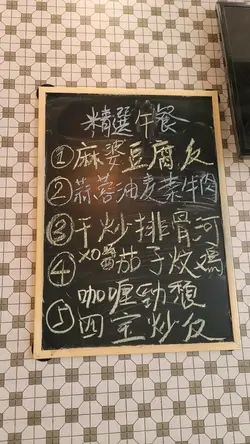 精選午餐
①麻婆豆腐反
②蒜蓉油麦菜牛肉
③干炒排骨河
④XO醬茄子炆
咖喱
⑤四宝炒反